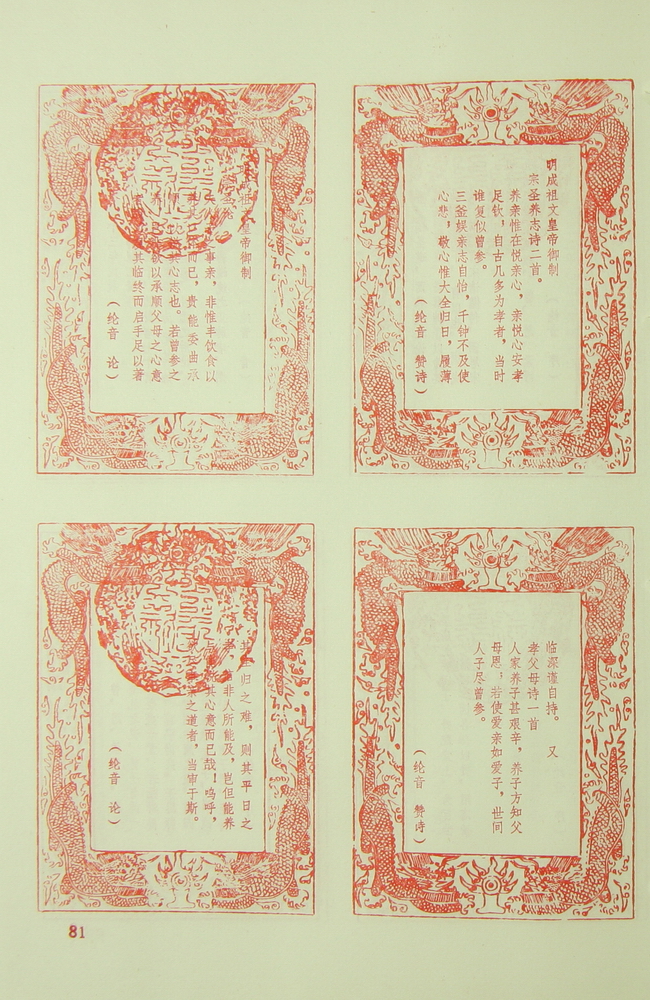 明成祖文皇帝御制
宗圣养志诗二首。
养亲惟在悦亲心，亲悦心安孝
足钦，自古几多为孝者，当时
谁复似曾参。
三釜娱亲志自怡，千钟不及使
心悲，敬心惟大全归日，履薄
（纶音 赞诗）
临深谨自持。 又
孝父母诗一首
人家养子甚艰辛，养子方知父
母恩；若使爱亲如爱子，世间
人子尽曾参。
（纶音 赞诗）
成祖文皇帝御制
事亲，非惟丰饮食以
而已，贵能委曲承
心志也。若曾参之
以承顺父母之心意
其临终而启手足以著
（纶音 论）
归之难，则其平日之
非人所能及，岂但能养
其心意而已哉！呜呼，
之道者，当审于斯。
（纶音 论）
81